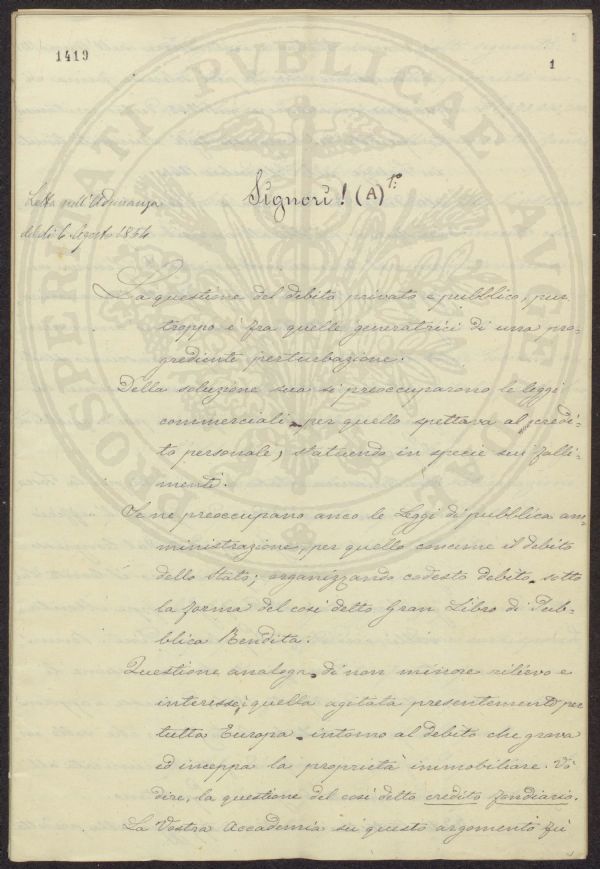 1419
1
Signori! (A)
Letta nell'Adunanza
del dì 6 Agosto 1854
La questione del debito privato e pubblico, pur
troppo è fra quelle generatrici di una pro-
grediente perturbazione.
Della soluzione sua si preoccuparono le leggi
commerciali, per quello spettava al credi-
to personale, statuendo in specie sui falli-
menti.
Se ne preoccupano anco le Leggi di pubblica am-
ministrazione, per quello concerne il debito
dello Stato; organizzando codesto debito sotto
la forma del così detto Gran Libro di Pub-
blica Rendita.
Questione analoga, di non minore rilievo e
interesse, è quella agitata presentemente per
tutta Europa, intorno al debito che grava
ed inceppa la proprietà immobiliare. Vò
dire, la questione del così detto credito fondiario.
La Vostra Accademia su questo argomento fù
PROSPERITATI PVBLICAE AVGENDAE